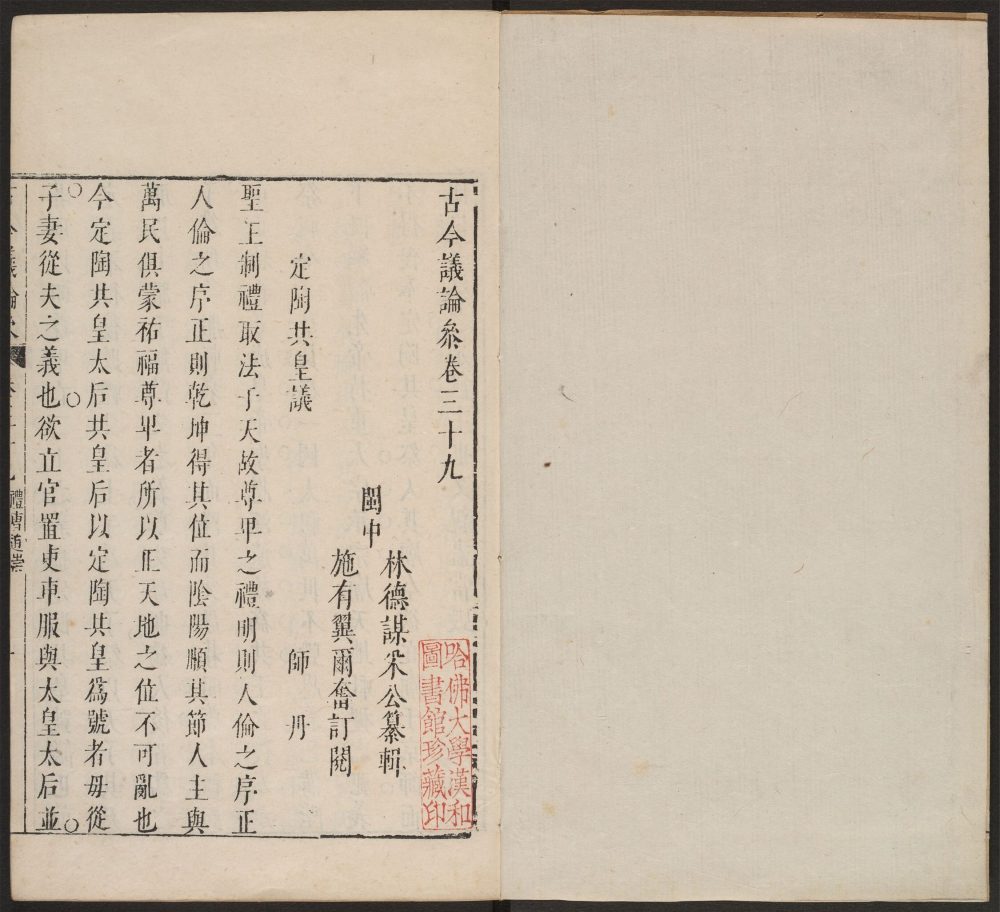 古今議論叅卷三十九
閩中
林德謀采公纂輯
施有翼爾奮訂閱
哈佛大學漢和
圖書館珍藏印
定陶共皇議
師丹
聖王制禮取法于天故尊卑之禮明則人倫之序正
人倫之序正則乾坤得其位而陰陽順其節人主與
萬民俱蒙祐福尊卑者所以正天地之位不可亂也
今定陶共皇太后共皇后以定陶共皇爲號者母從
子妻從夫之義也欲立官置吏車服與太皇太后並
禮曹追崇